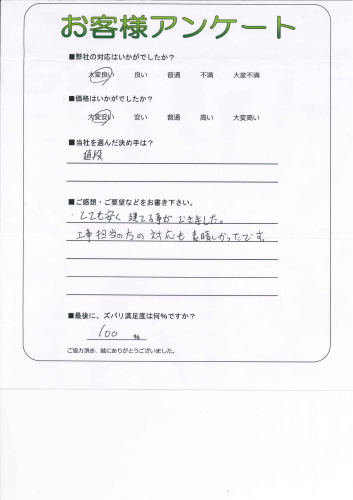 お客様アンケート
■弊社の対応はいかがでしたか？
大変良い 良い 普通 不満 大変不満
■価格はいかがでしたか？
大変安い 安い 普通 高い 大変高い
■当社を選んだ決め手は？
値段
■ご感想・ご要望などをお書き下さい。
・とても安く 建てる事ができました。
工事担当の方の対応も素晴しかったです。
■最後に、ズバリ満足度は何％ですか？
100 ％
ご協力頂き、誠にありがとうございました。